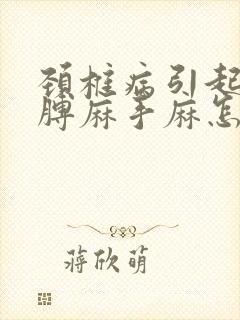 颈椎病引起
膊麻手麻怎
蒋欣萌